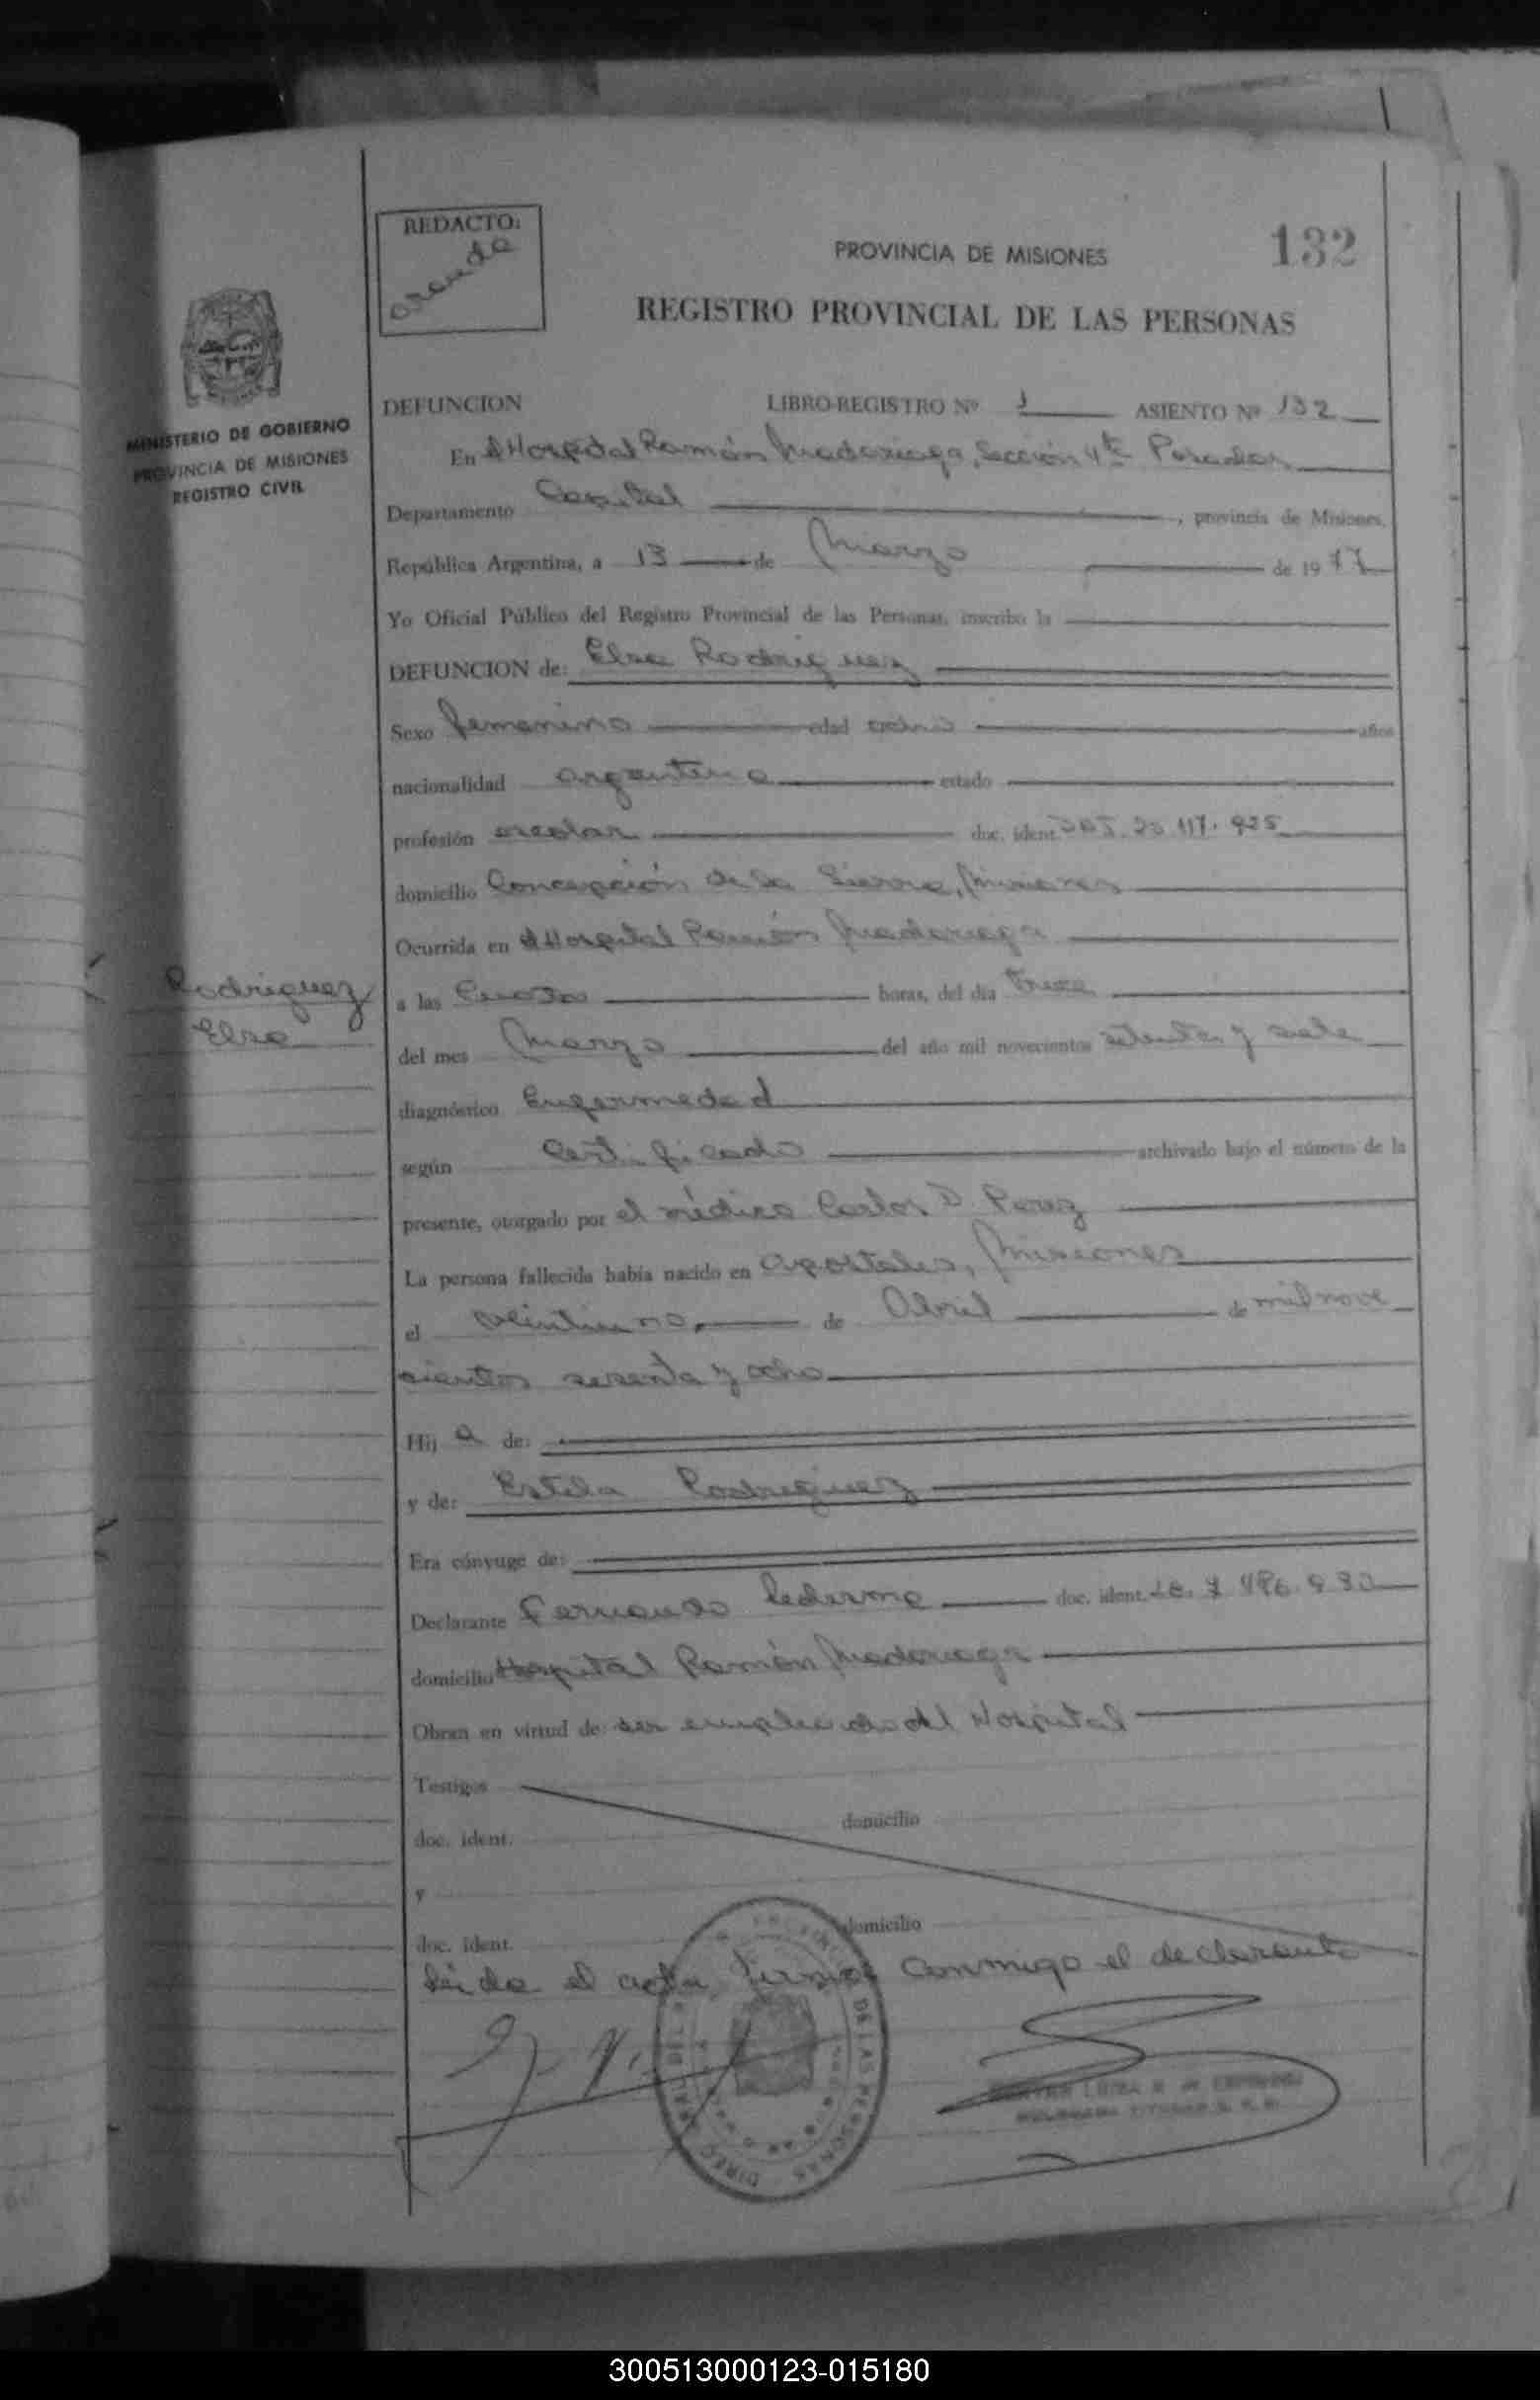 REDACTO:
132
PROVINCIA DE MISIONES
REGISTRO PROVINCIAL DE LAS PERSONAS
MINISTERIO DE GOBIERNO
PROVINCIA DE MISIONES
REGISTRO CIVIL
DEFUNCION LIBRO-REGISTRO Nº 1 ASIENTO Nº 132
En el Hospital Ramón Madariaga, Sección 4ta Posadas
Departamento Capital, provincia de Misiones,
República Argentina, a 13 de Marzo de 1977
Yo Oficial Público del Registro Provincial de las Personas, inscribo la
DEFUNCION de: Elsa Rodriguez
Sexo femenino edad ocho años
nacionalidad argentina estado
profesión escolar doc. ident. 117.925
domicilio Concepción de la Sierra, Misiones
Ocurrida en el Hospital Ramón Madariaga
Rodriguez
Elsa
a las Cuatro horas, del día trece
del mes Marzo del año mil novecientos setenta y siete
diagnóstico Enfermedad
según Certificado archivado bajo el número de la
presente, otorgado por el médico Carlos D. Perez
La persona fallecida había nacido en Apostoles, Misiones
el veintiuno de Abril de mil nove
cientos sesenta y ocho
Hij a de:
y de: Estela Rodriguez
Era cónyuge de:
Declarante Fernando Ledesma doc. ident. LE.
domicilio Hospital Ramón Madariaga
Obran en virtud de: ser empleado del Hospital
Testigos
doc. ident. domicilio
y
doc. ident. domicilio
Leida el acta, firma conmigo el declarante
DE LAS PERSONAS
300513000123-015180